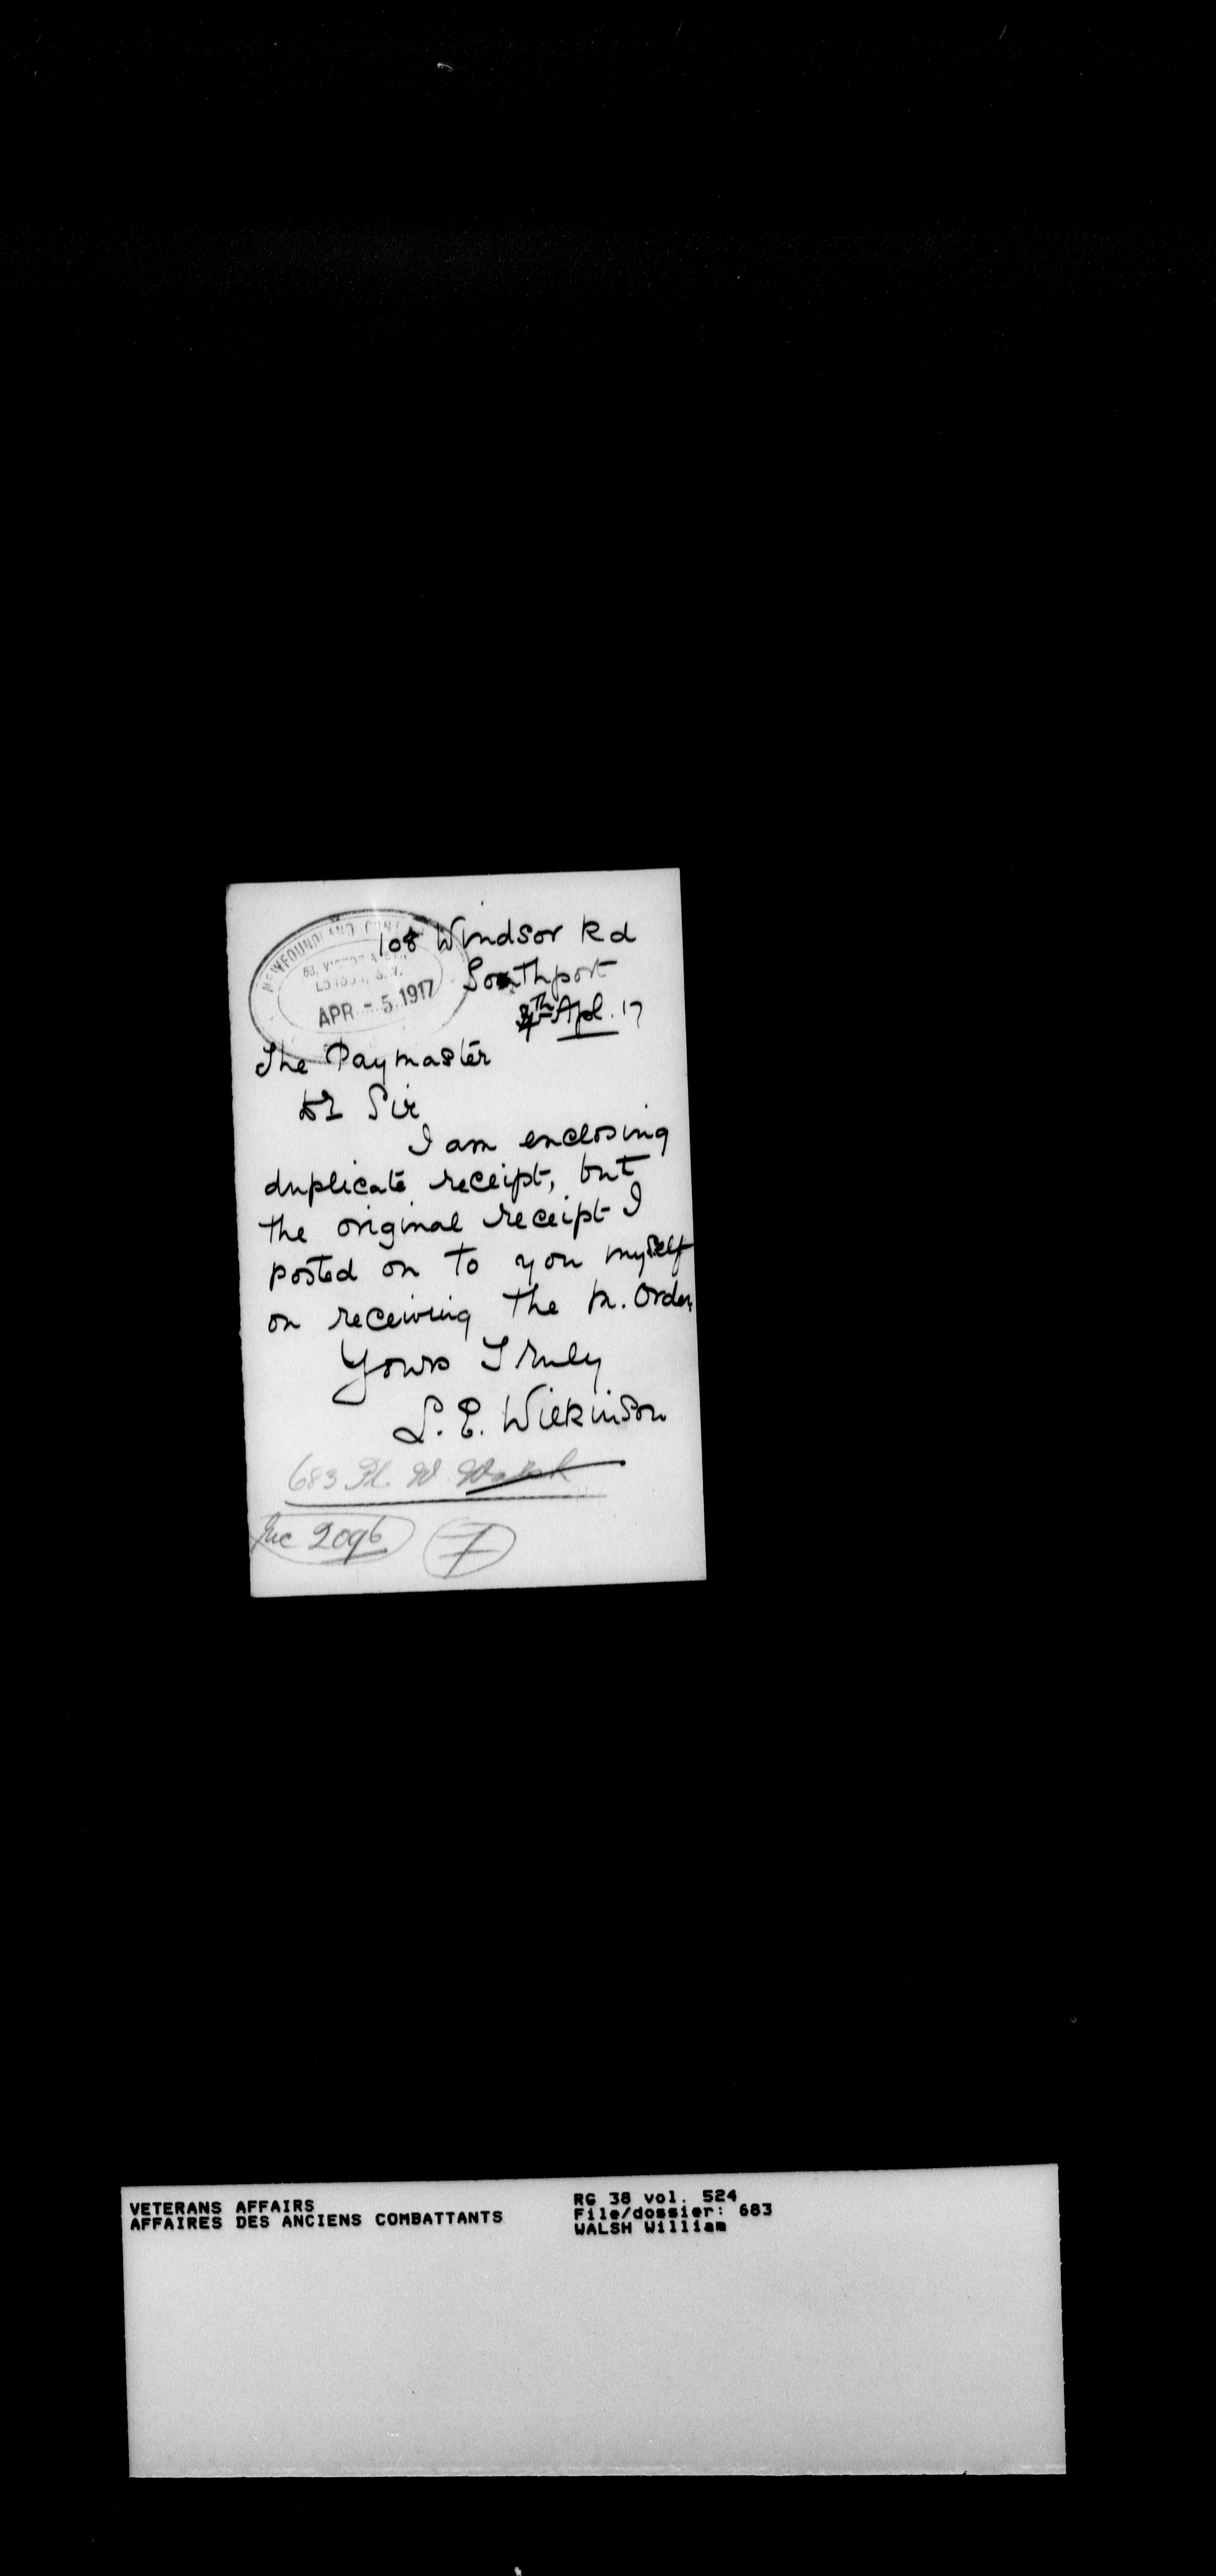 NEWFOUNDLAND
APR - 5 1917
108 Windsor Rd
Southport
4th Apl. 17
The Paymaster
Dr Sir
I am enclosing
duplicate receipt, but
the original receipt I
posted on to you myself
on receiving the M. Order,
Yours Truly
L. E. Wilkinson
683 Pt. W. Walsh
2096
7
VETERANS AFFAIRS
AFFAIRES DES ANCIENS COMBATTANTS
RG 38 vol. 524
File/dossier: 683
WALSH William